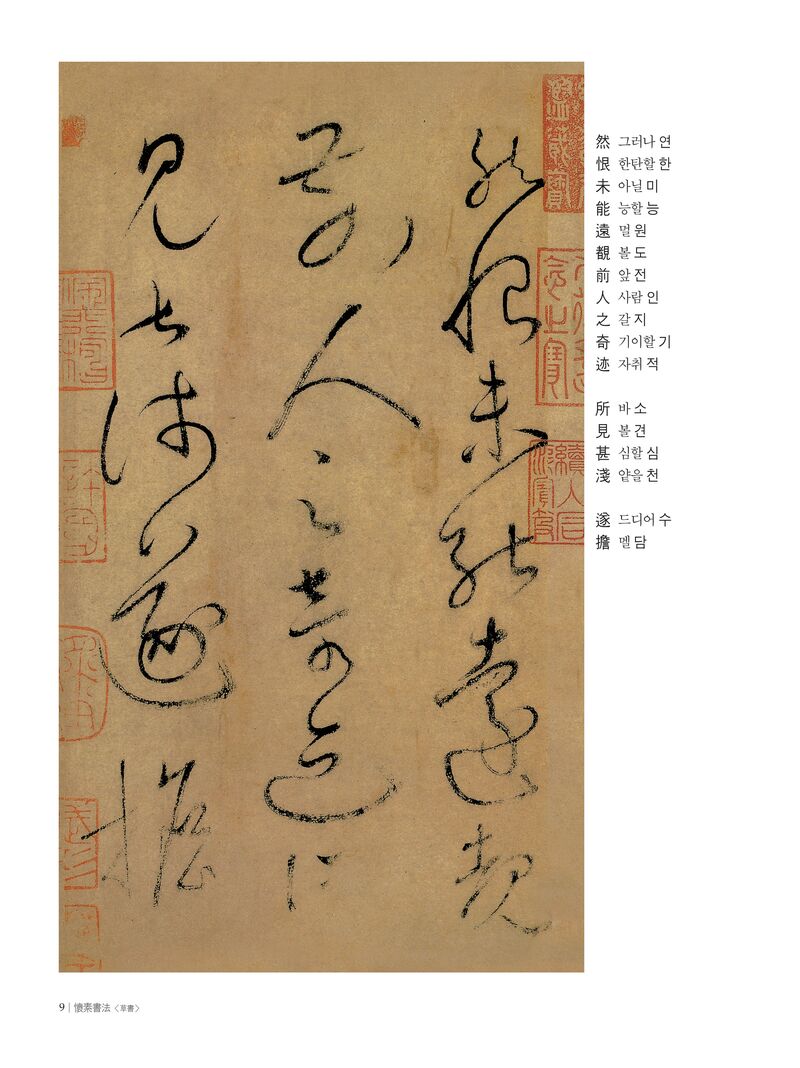 然恨未能遠覩
前人之奇迹所
見甚淺遂擔
然 그러나 연
恨 한탄할 한
未 아닐 미
能 능할 능
遠 멀 원
覩 볼 도
前 앞 전
人 사람 인
之 갈 지
奇 기이할 기
迹 자취 적
所 바 소
見 볼 견
甚 심할 심
淺 얕을 천
遂 드디어 수
擔 멜 담
9 | 懷素書法 〈草書〉